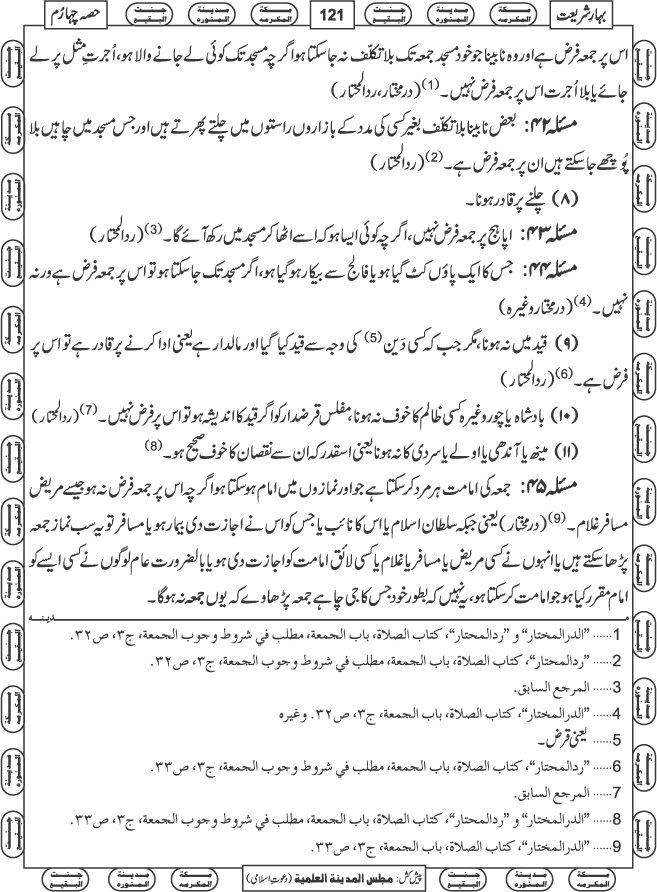 بہارِ شریعت 121 حصہ چہارم
اس پر جمعہ فرض ہے اور وہ نابینا جو خود مسجد جمعہ تک بلا تکلّف نہ جاسکتا ہو اگرچہ مسجد تک کوئی لے جانے والا ہو، اُجرتِ مثل پر لے
جائے یا بلا اُجرت اس پر جمعہ فرض نہیں۔(1) (درمختار، ردالمحتار)
مسئلہ ۴۲: بعض نابینا بلا تکلّف بغیر کسی کی مدد کے بازاروں راستوں میں چلتے پھرتے ہیں اور جس مسجد میں چاہیں بلا
پُوچھے جاسکتے ہیں ان پر جمعہ فرض ہے۔(2) (ردالمحتار)
(۸) چلنے پر قادر ہونا۔
مسئلہ ۴۳: اپاہج پر جمعہ فرض نہیں، اگرچہ کوئی ایسا ہو کہ اسے اٹھا کر مسجد میں رکھ آئے گا۔(3) (ردالمحتار)
مسئلہ ۴۴: جس کا ایک پاؤں کٹ گیا ہو یا فالج سے بیکار ہوگیا ہو، اگر مسجد تک جاسکتا ہو تو اس پر جمعہ فرض ہے ورنہ
نہیں۔(4) (درمختار وغیرہ)
(۹) قید میں نہ ہونا، مگر جب کہ کسی دَین(5) کی وجہ سے قید کیا گیا اور مالدار ہے یعنی ادا کرنے پر قادر ہے تو اس پر
فرض ہے۔(6) (ردالمحتار)
(۱۰) بادشاہ یا چور وغیرہ کسی ظالم کا خوف نہ ہونا، مفلس قرضدار کو اگر قید کا اندیشہ ہو تو اس پر فرض نہیں۔(7) (ردالمحتار)
(۱۱) مینھ یا آندھی یا اولے یا سردی کا نہ ہونا یعنی اسقدر کہ ان سے نقصان کا خوف صحیح ہو۔(8)
مسئلہ ۴۵: جمعہ کی امامت ہر مرد کرسکتا ہے جو اور نمازوں میں امام ہوسکتا ہو اگرچہ اس پر جمعہ فرض نہ ہو جیسے مریض
مسافر غلام۔(9) (درمختار) یعنی جبکہ سلطان اسلام یا اس کا نائب یا جس کو اس نے اجازت دی بیمار ہو یا مسافر تو یہ سب نماز جمعہ
پڑھا سکتے ہیں یا انہوں نے کسی مریض یا مسافر یا غلام یا کسی لائق امامت کو اجازت دی ہو یا بالضرورت عام لوگوں نے کسی ایسے کو
امام مقرر کیا ہو جو امامت کرسکتا ہو، یہ نہیں کہ بطور خود جس کا جی چاہے جمعہ پڑھاوے کہ یوں جمعہ نہ ہوگا۔
1...... ”الدرالمختار“ و ”ردالمحتار“، کتاب الصلاة، باب الجمعة، مطلب في شروط وجوب الجمعة، ج۳، ص۳۲.
2...... ”ردالمحتار“، کتاب الصلاة، باب الجمعة، مطلب في شروط وجوب الجمعة، ج۳، ص۳۲.
3...... المرجع السابق.
4...... ”الدرالمختار“، کتاب الصلاة، باب الجمعة، ج۳، ص۳۲. وغيره
5...... یعنی قرض۔
6...... ”ردالمحتار“، کتاب الصلاة، باب الجمعة، مطلب في شروط وجوب الجمعة، ج۳، ص۳۳.
7...... المرجع السابق.
8...... ”الدرالمختار“ و ”ردالمحتار“، کتاب الصلاة، باب الجمعة، مطلب في شروط وجوب الجمعة، ج۳، ص۳۳.
9...... ”الدرالمختار“، کتاب الصلاة، باب الجمعة، ج۳، ص۳۳.
پیش کش: مجلس المدینة العلمیة (دعوتِ اسلامی)